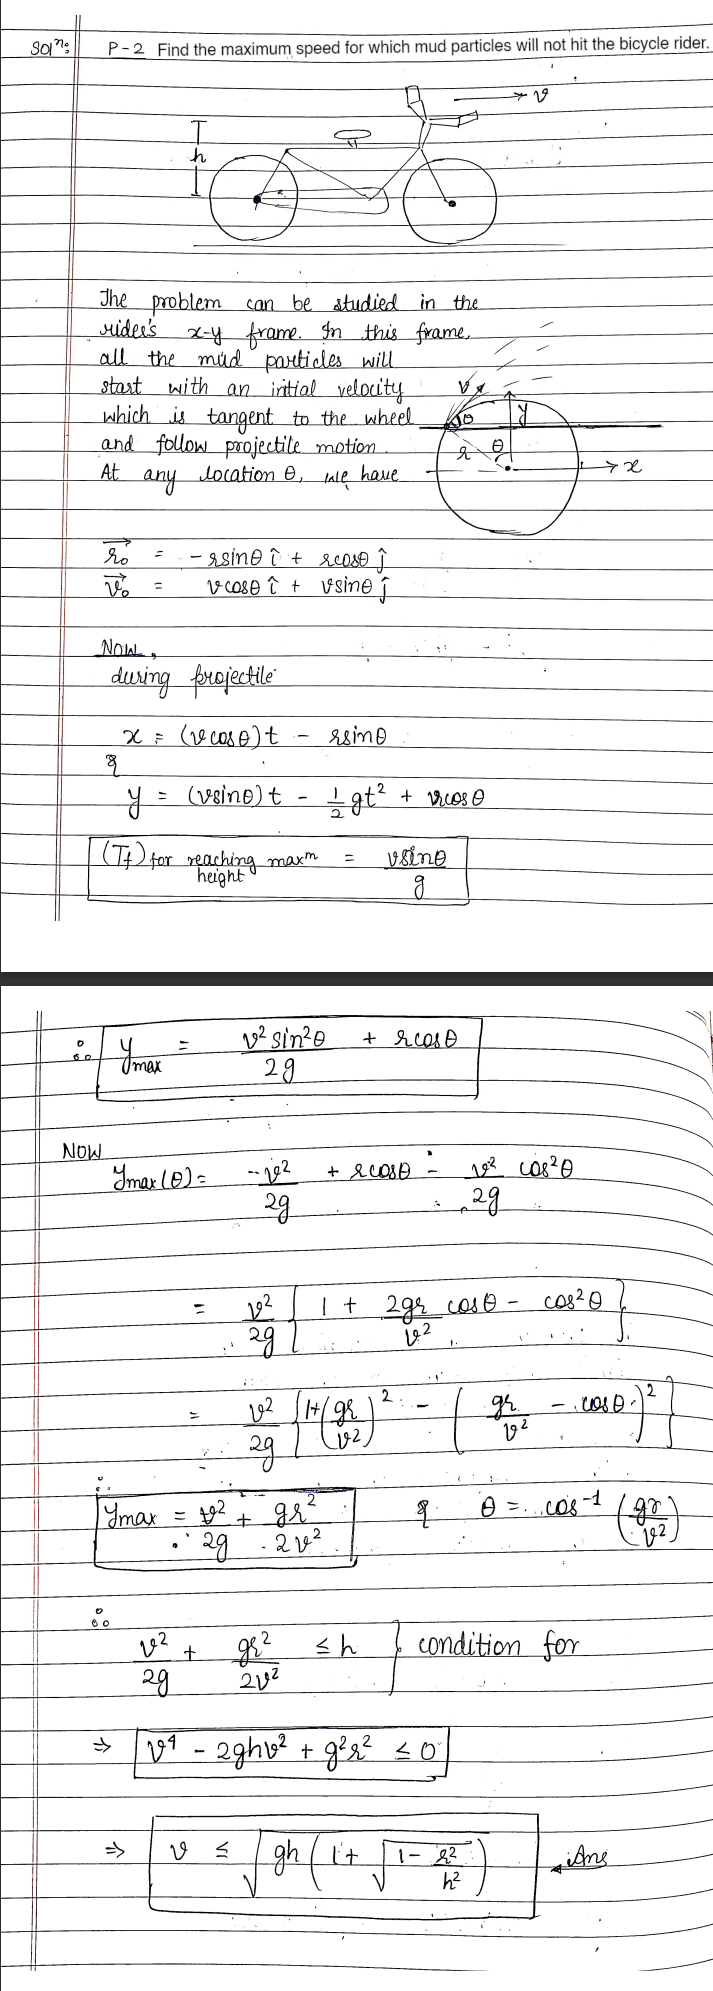 Solⁿ: P-2 Find the maximum speed for which mud particles will not hit the bicycle rider.
v
h
The problem can be studied in the
rider's x-y frame. In this frame,
all the mud particles will
start with an initial velocity
which is tangent to the wheel
and follow projectile motion.
At any location θ, we have
v
θ
y
r
θ
x
r₀ = -rsinθ î + rcosθ ĵ
v₀ = vcosθ î + vsinθ ĵ
Now,
during projectile
x = (vcosθ)t - rsinθ
&
y = (vsinθ)t - 1/2 gt² + rcosθ
(Tf) for reaching maxᵐ height = vsinθ/g
∴ ymax = v²sin²θ/2g + rcosθ
NOW
ymax(θ) = v²/2g + rcosθ - v²/2g cos²θ
= v²/2g { 1 + 2gr/v² cosθ - cos²θ }
= v²/2g { 1 + (gr/v²)² - (gr/v² - cosθ)² }
∴ ymax = v²/2g + gr²/2v² & θ = cos⁻¹(gr/v²)
∴
v²/2g + gr²/2v² ≤ h } condition for
⇒ v⁴ - 2ghv² + g²r² ≤ 0
⇒ v ≤ √(gh(1 + √(1 - r²/h²))) Ans